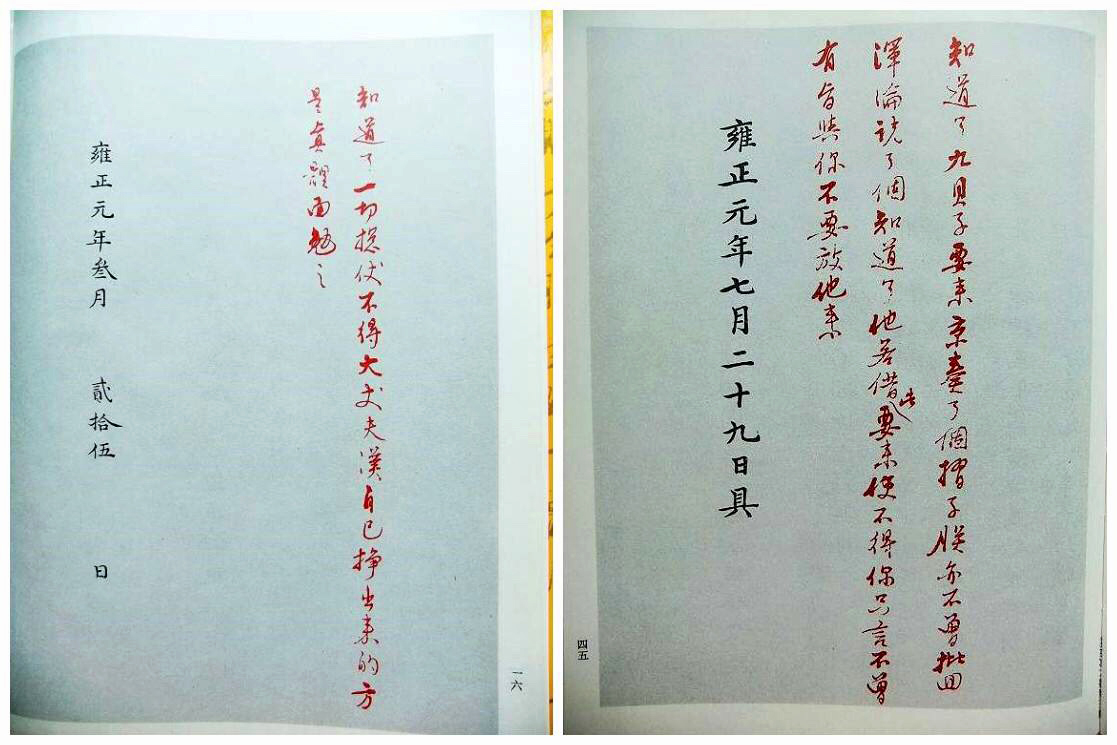 知道了一切總仗不得大丈夫漢自己掙出來的方
是真體面勉之
雍正元年叁月 貳拾伍 日
一六
知道了九貝子要來京奏了個摺子朕亦不曾批回
渾淪說了個知道了他若借此要來使不得你只言不曾
有旨與你不要放他來
雍正元年七月二十九日具
四五